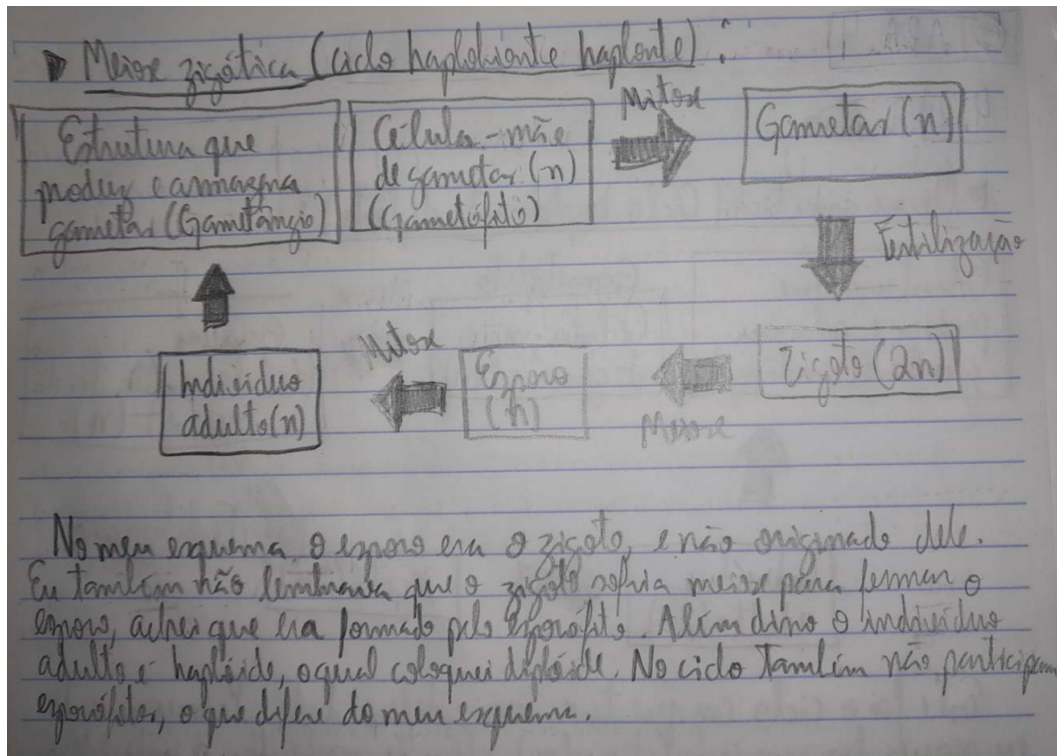 Meiose zigótica (ciclo haplobionte haplonte):
Estrutura que
produz e armazena
gametas (Gametângio)
Célula-mãe
de gametas (n)
(Gametófito)
Mitose
Gametas (n)
Fertilização
Zigoto (2n)
Meiose
Esporo
(n)
Mitose
Indivíduo
adulto (n)
No meu esquema o esporo era o zigoto, e não originado dele.
Eu também não lembrava que o zigoto sofria meiose para formar o
esporo, achei que era formado pelo esporófito. Além disso o indivíduo
adulto é haplóide, o qual coloquei diplóide. No ciclo também não participam
esporófitos, o que difere do meu esquema.